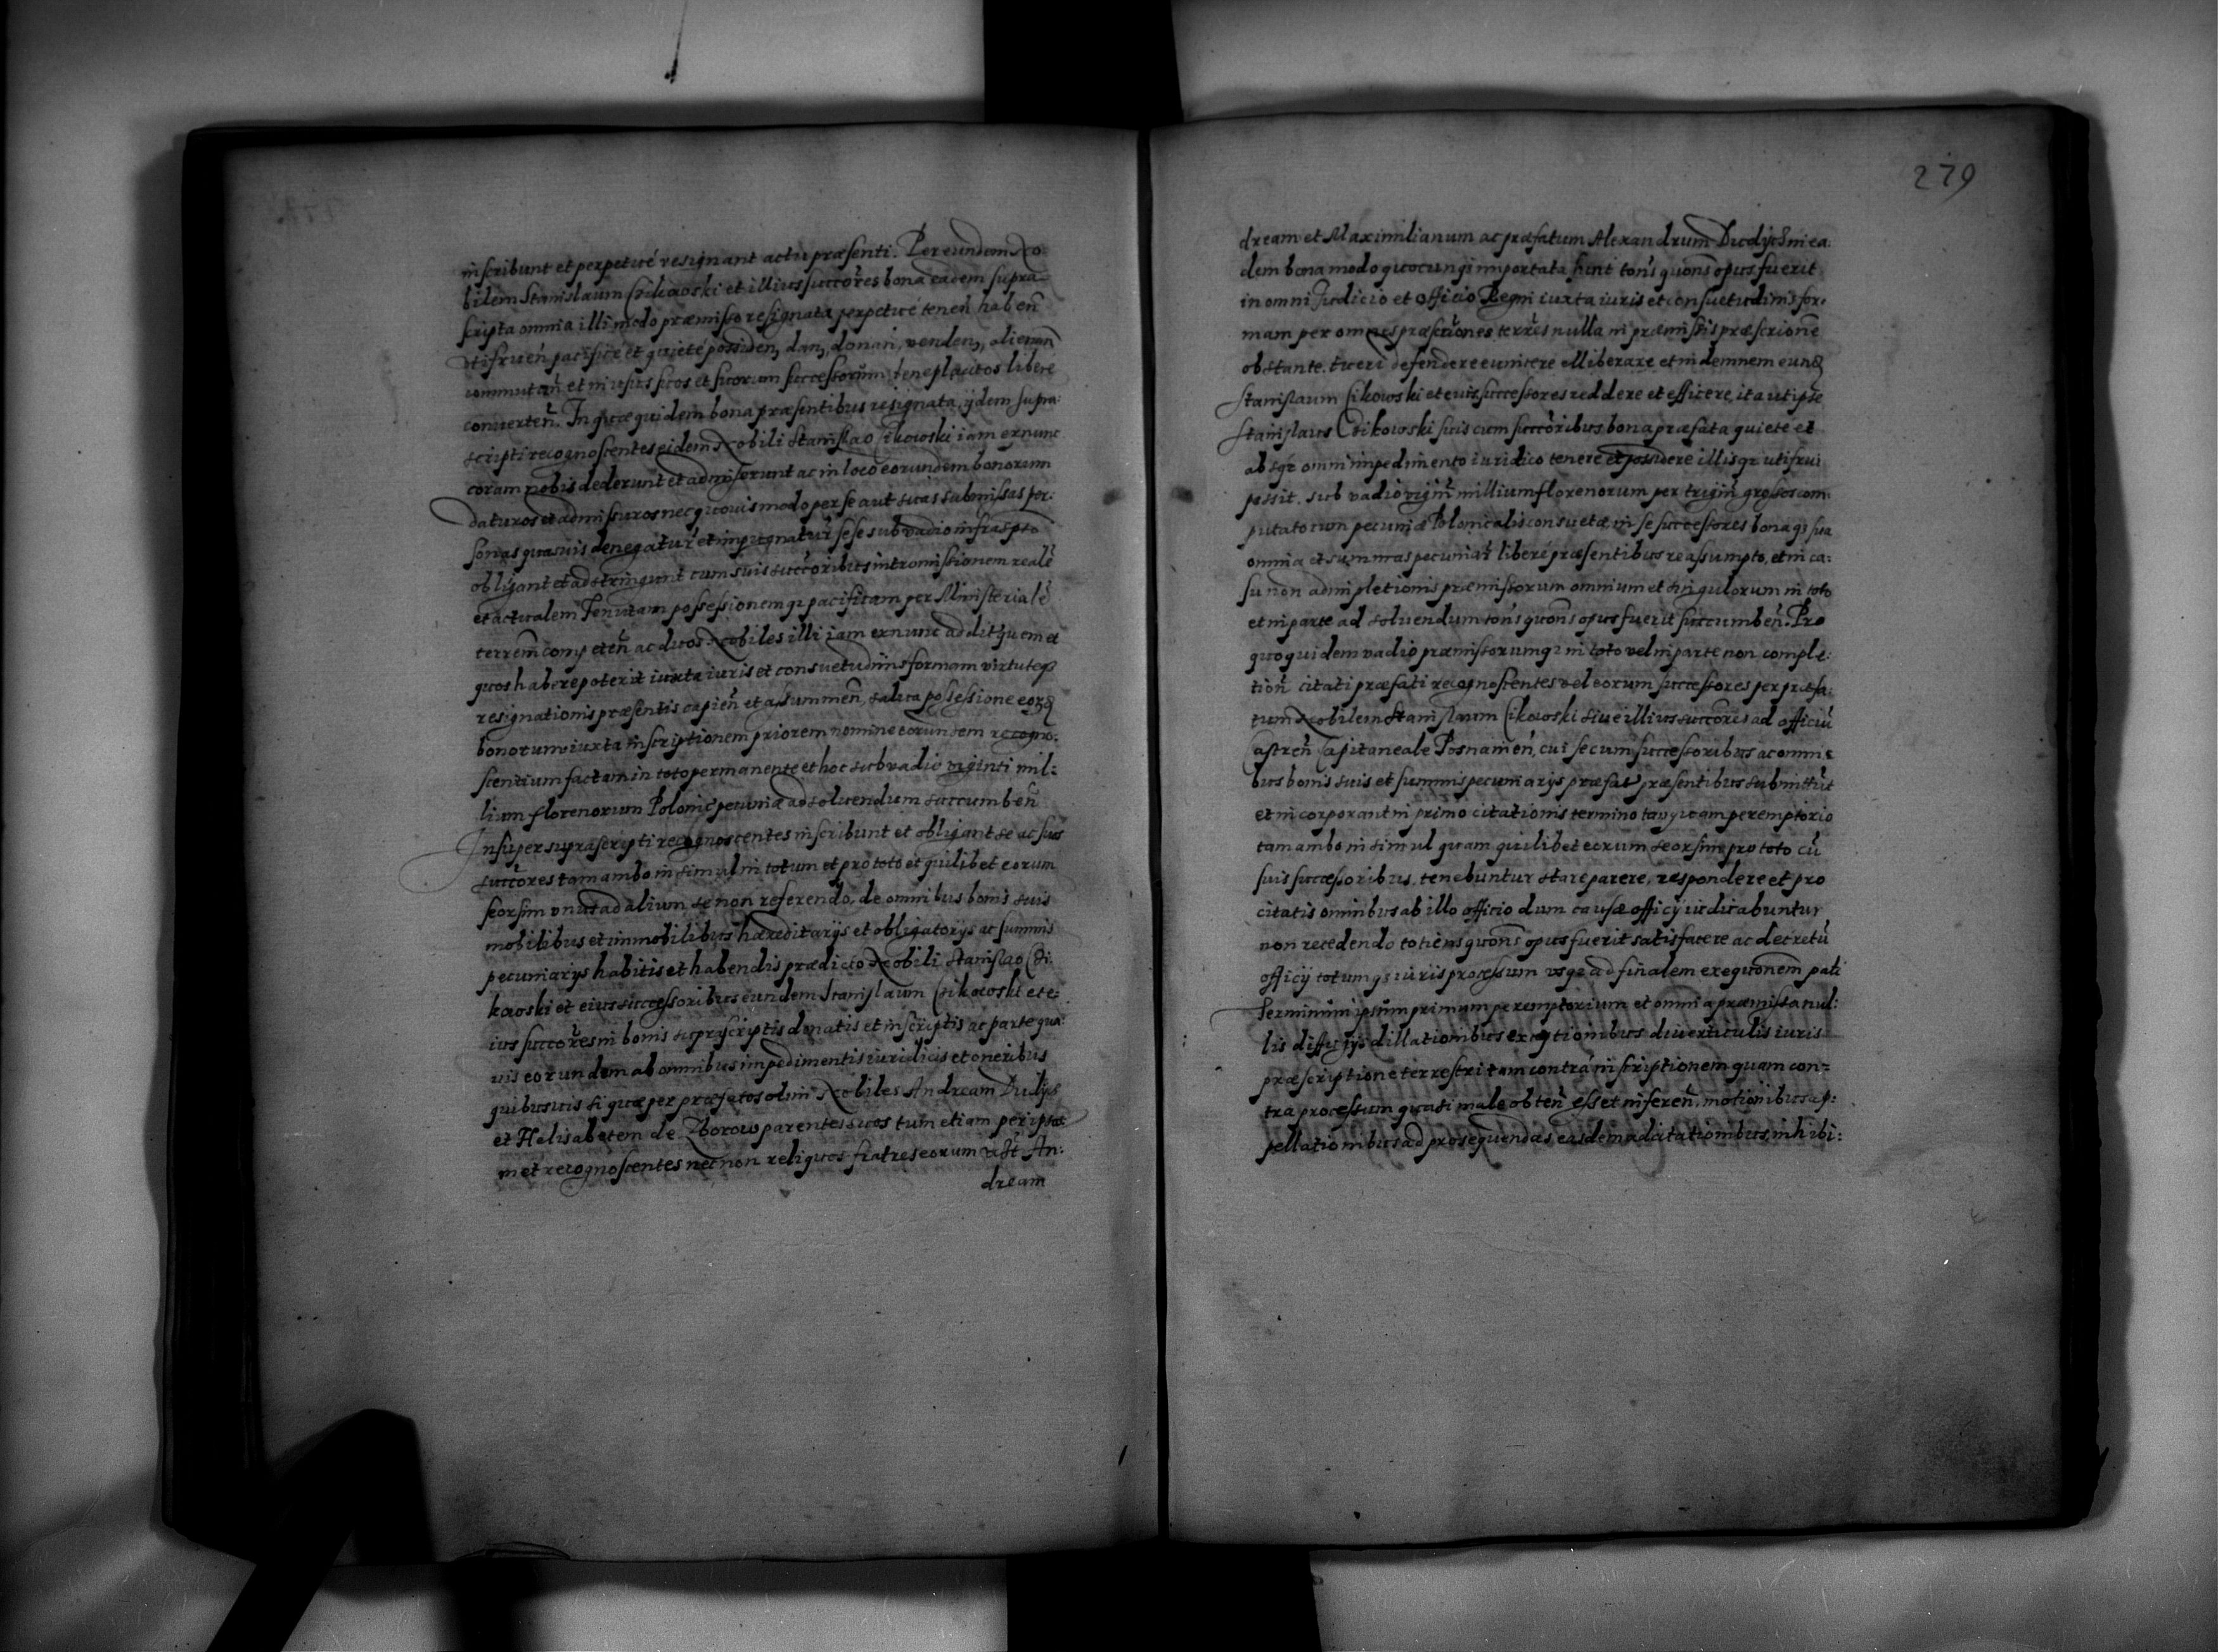 inscribunt et perpetué resignant actu præsenti. Per eundem No
bilem Stanislaum Czikowski et illius succores bona eadem supra
scripta omnia illi modo præmisso resignata perpetué tenen̄ haben̄
utifruen̄ pacificè et quietè possiden, dan, donan, venden, alienan̄
commutan̄ et in usus suos et suorum successorum beneplacitos libere
conuerten̄. In quæ quidem bona præsentibus resignata, ijdem supra:
scripti recognoscentes eidem Nobili Stanislao Cikowski iam ex nunc
coram nobis dederunt et admiserunt ac in loco eorundem bonorum
daturos et admissuros nec quouis modo per se aut suas submissas per:
sonas quasuis denegatur̄ et impugnatur̄ sese sub vadio infraspto
obligant et adstringunt cum suis succoribus intromissionem realē
et actualem Tenutam possessionemq₃ pacificam per Ministerialē
terrēm competen̄ ac duos Nobiles illi iam ex nunc additu quem et
quos habere poterit iuxta iuris et consuetudinis formam virtuteq₃
resignationis præsentis capien̄ et assummen̄, salua possessione eoꝝ
bonorum iuxta inscriptionem priorem nomine eorundem recogno:
scentium factam in toto permanente et hoc sub vadio viginti mil:
lium florenorum Polonic̄ pecuniæ ad soluendum succumben̄
Insuper suprascripti recognoscentes inscribunt et obligant se ac suos
succores tam ambo insimul in totum et pro toto et quilibet eorum
seorsim unus ad alium se non referendo, de omnibus bonis suis
mobilibus et immobilibus hæreditarijs et obligatorijs ac summis
pecuniarys habitis et habendis prædicto Nobili Stanislao Czi:
kowski et eius successoribus eundem Stanislaum Czikowski et e:
ius succores in bonis suprascriptis donatis et inscriptis ac parte qua:
uis eorundem ab omnibus impedimentis iuridicis et oneribus
quibusuis si quæ per præfatos olim Nobiles Andream Dudijcz
et Halisabetem de Zborow parentes suos tum etiam per ipsos
met recognoscentes necnon reliquos fratres eorum An:
dream
279
dream et Maximilianum ac præfatum Alexandrum Dudijcz in ea:
dem bona modo quocunq₃ importata sunt tons quons opus fuerit
in omni Judicio et officio Regni iuxta iuris et consuetudinis for:
mam per omnes præscriones terres nulla in præmissis præscrione
obstante, tueri defendere euincere elliberare et indemnem eunꝫ
Stanislaum Cikowski et eius successores reddere et efficere, ita ut ipse
Stanislaus Czikowski suis cum succoribus bona præfata quiete et
absq₃ omni impedimento iuridico tenere et possidere illisq₃ utifrui
possit. sub vadio vigin̄ millium florenorum per trigin̄ grossos com
putato cum pecuniæ Polonicalis consuetæ in se successores bonaq₃ sua
omnia et summas pecuniar̄ liberè præsentibus reassumpto, et in ca:
su non adimpletionis præmissorum omnium et singulorum in toto
et in parte ad soluendum tons quons opus fuerit succumben̄. Pro
quo quidem vadio præmissorumq₃ in toto vel in parte non comple:
tion̄ citati præfati recognoscentes vel eorum successores per præfa:
tum Nobilem Stanislaum Cikowski siue illius succores ad officiū
Castren̄ Capitaneale Posnanien̄, cui se cum successoribus ac omni:
bus bonis suis et summis pecuniarys præfat præsentibus submittūt
et incorporant in primo citationis termino tanquam peremptorio
tam ambo insimul quam quilibet eorum seorsim pro toto cū
suis successoribus, tenebuntur stare parere, respondere et pro
citatis omnibus ab illo officio dum causæ officij iudicabuntur
non recedendo totiens quons opus fuerit satisfacere ac decretū
officij totumq₃ iuris processum usq₃ ad finalem exequonem pati
Terminum ipsum primum peremptorium et omnia præmissa nul:
lis diffugijs dillationibus exceptionibus diuerticulis iuris
præscriptione terrestri tam contra inscriptionem quam con=
tra processum quasi male obten̄ esset inferen̄, motionibus ap:
pellationibus ad prosequendas easdem adcitationibus, inhibi: